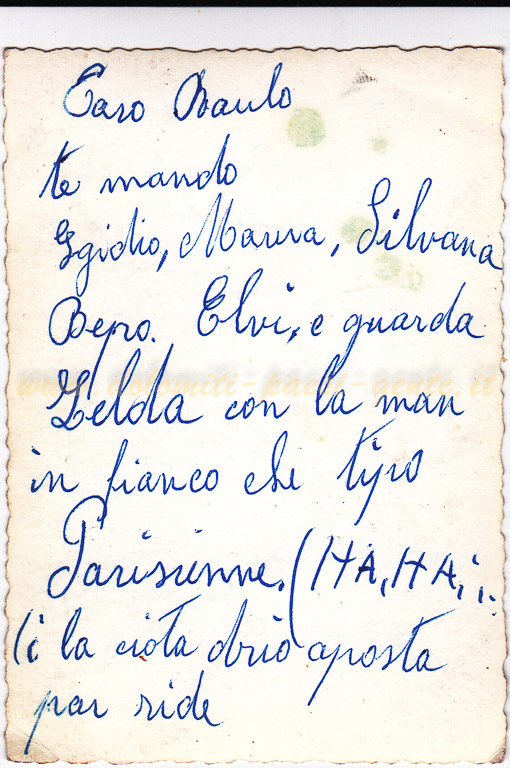 Caro Baulo
te mando
Egidio, Marva, Silvana
Bepo. Elvi, e guarda
Zelda con la man
in fianco che tipo
Parisienne. (HA, HA, i..
(i la ciota drio aposta
par ride
www.dolomiti-paesi-gente.it